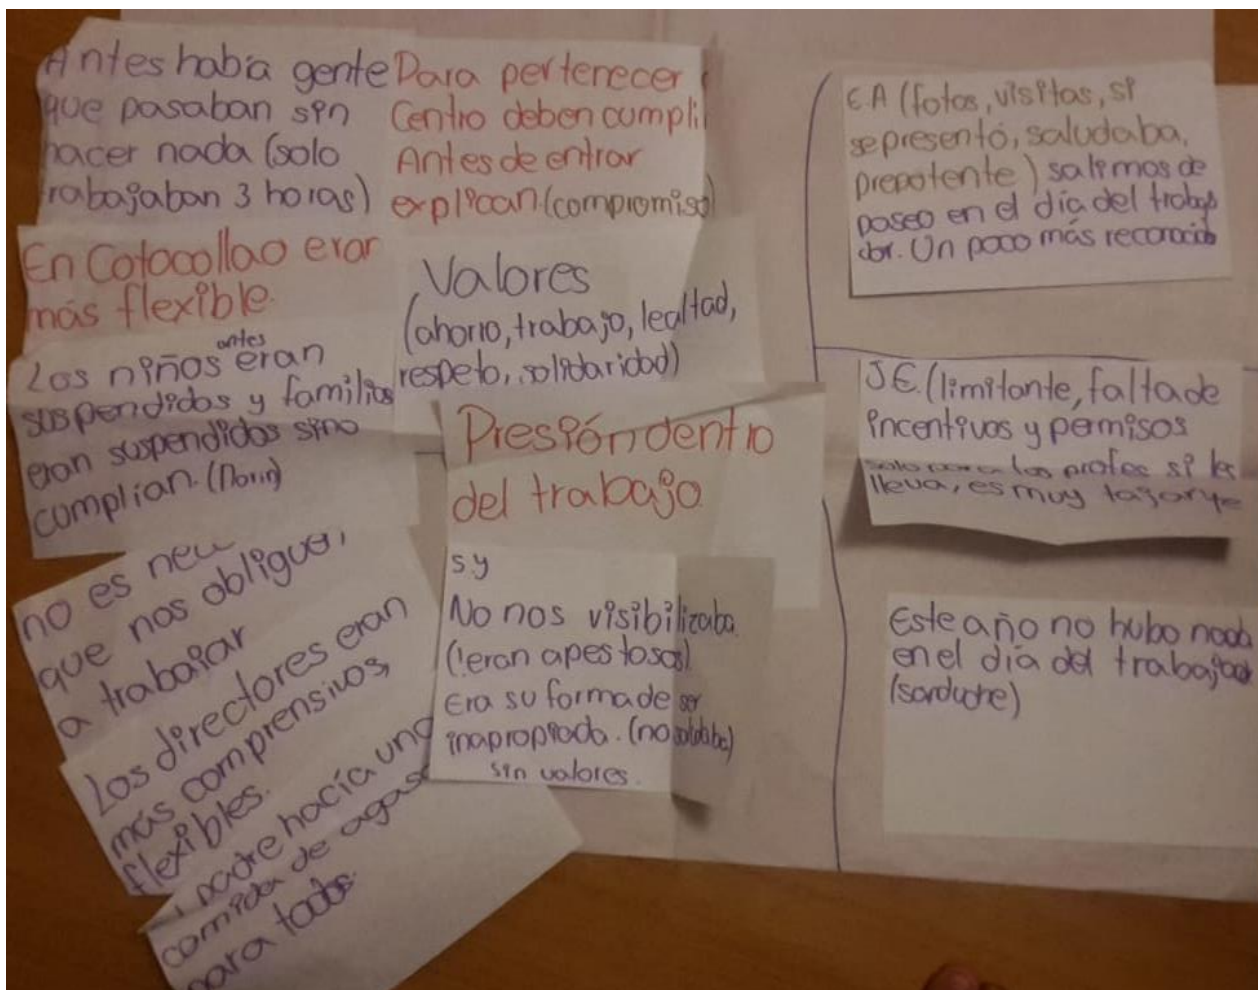 Antes había gente
que pasaban sin
hacer nada (solo
trabajaban 3 horas)
En Cotocollao eran
más flexible.
Los niños antes eran
suspendidos y familias
eran suspendidos sino
cumplian.
no es
que nos obliguen,
a trabajar
Los directores eran
más comprensivos,
flexibles.
padre hacía una
comida de
para todos.
Para pertenecer
Centro deben cumpli
Antes de entrar
explican.(compromiso)
Valores
(ahorro, trabajo, lealtad,
respeto, solidaridad)
Presión dentro
del trabajo.
S.Y
No nos visibilizaba.
(!eran apestosos)
Era su forma de ser
inapropiada. (no saludaba)
sin valores.
E.A (fotos, visitas, si
se presentó, saludaba,
prepotente) salimos de
paseo en el día del trabaja
dor. Un poco más reconocido
J.E. (limitante, falta de
incentivos y permisos
solo para los profes si les
lleva, es muy tajante
Este año no hubo nada
en el día del trabajador
(sanduche)